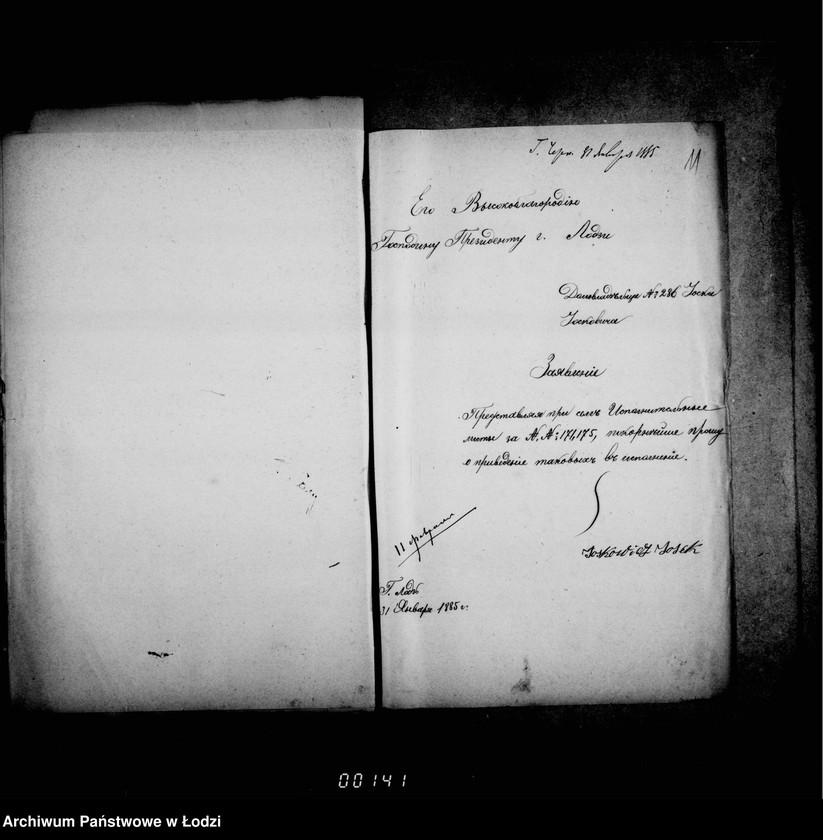 31 Января 1885
11
Его Высокоблагородію
Господину Президенту г. Лодзи
Домовладѣльца № 286 Іоска
Іосковича
Заявленіе
Представляя при семъ Исполнительные
листы за №.№: 174, 175, покорнѣйше прошу
о приведеніе таковыхъ въ исполненіе.
Joskowicz Josek
11 февраля
Г. Лодзь
31 Января 1885 г.
00141
Archiwum Państwowe w Łodzi